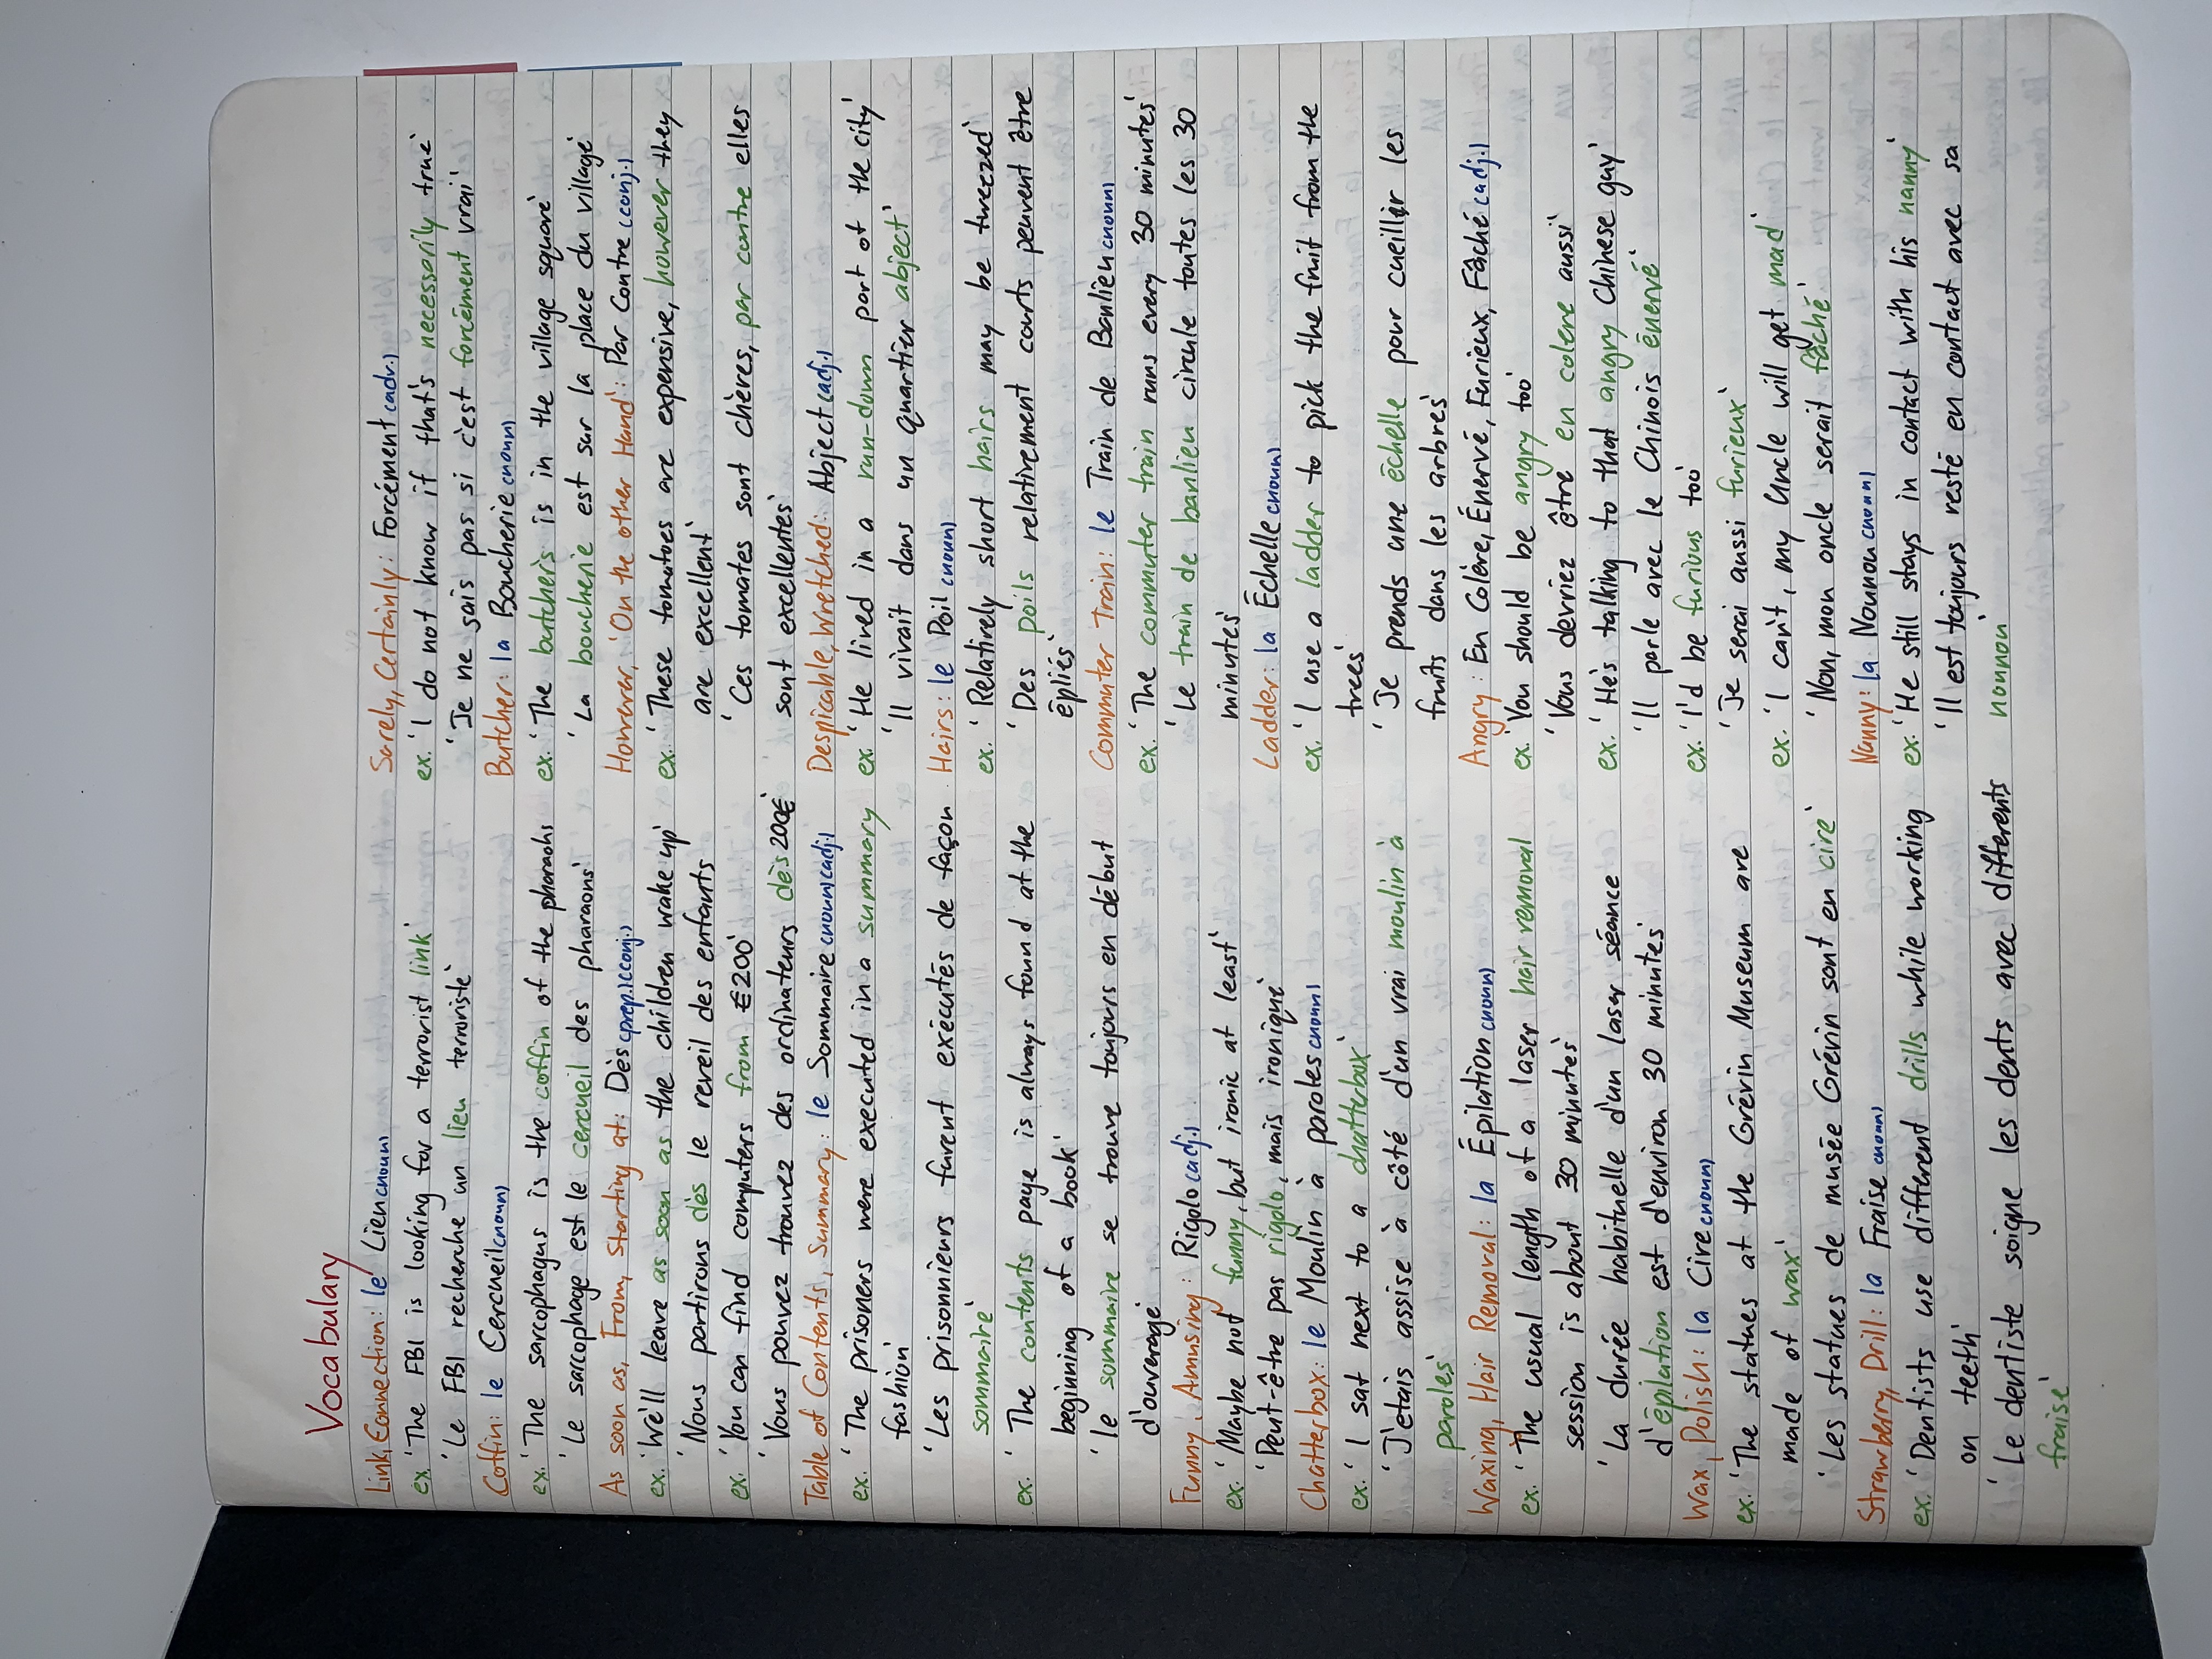 Vocabulary
Link, Connection: le Lien (noun)
ex. 'The FBI is looking for a terrorist link'
'Le FBI recherche un lien terroriste'
Coffin: le Cercueil (noun)
ex. 'The sarcophagus is the coffin of the pharaohs
'Le sarcophage est le cercueil des pharaons'
As soon as, From, Starting at: Dès (prep.)(conj.)
ex. 'We'll leave as soon as the children wake up'
'Nous partirons dès le reveil des enfants
ex. 'You can find computers from €200'
'Vous pouvez trouvez des ordinateurs dès 200€'
Table of Contents, Summary: le Sommaire (noun)(adj.)
ex. 'The prisoners were executed in a summary
fashion'
'Les prisonnieurs furent exécutés de façon
sommaire'
ex. 'The contents page is always found at the
beginning of a book'
'le sommaire se trouve toujours en début
d'ouverage'
Funny, Amusing: Rigolo (adj.)
ex. 'Maybe not funny, but ironic at least'
'Peut-être pas rigolo, mais ironique'
Chatterbox: le Moulin à paroles (noun)
ex. 'I sat next to a chatterbox'
'J'etais assise à côté d'un vrai moulin à
paroles'
Waxing, Hair Removal: la Épilation (noun)
ex. 'The usual length of a laser hair removal
session is about 30 minutes'
'La durée habituelle d'un laser séance
d'épilation est d'environ 30 minutes'
Wax, Polish: la Cire (noun)
ex. 'The statues at the Grévin Museum are
made of wax'
'Les statues de musée Grévin sont en cire'
Strawberry, Drill: la Fraise (noun)
ex. 'Dentists use different drills while working
on teeth'
'Le dentiste soigne les dents avec différents
fraise'
Surely, Certainly: Forcément (adv.)
ex. 'I do not know if that's necessarily true'
'Je ne sais pas si c'est forcément vrai'
Butcher: la Boucherie (noun)
ex. 'The butcher's is in the village square'
'La boucherie est sur la place du village'
However, 'On the other Hand': Par Contre (conj.)
ex. 'These tomatoes are expensive, however they
are excellent'
'Ces tomates sont chères, par contre elles
sont excellentes'
Despicable, Wretched: Abject (adj.)
ex. 'He lived in a run-down part of the city'
'Il vivrait dans un quartier abject'
Hairs: le Poil (noun)
ex. 'Relatively short hairs may be tweezed'
'Des poils relativement courts peuvent être
épliés'
Commuter Train: le Train de Banlieu (noun)
ex. 'The commuter train runs every 30 minutes'
'Le train de banlieu circule toutes les 30
minutes'
Ladder: la Échelle (noun)
ex. 'I use a ladder to pick the fruit from the
trees'
'Je prends une échelle pour cueillir les
fruits dans les arbres'
Angry: En Colère, Énervé, Furieux, Fâché (adj.)
ex. 'You should be angry too'
'Vous devriez être en colere aussi
ex. 'He's talking to that angry Chinese guy'
'Il parle avec le Chinois énervé'
ex. 'I'd be furious too'
'Je serai aussi furieux'
ex. 'I can't, my Uncle will get mad'
'Non, mon oncle serait fâché'
Nanny: la Nounou (noun)
ex. 'He still stays in contact with his nanny'
'Il est toujours resté en contact avec sa
nounou'